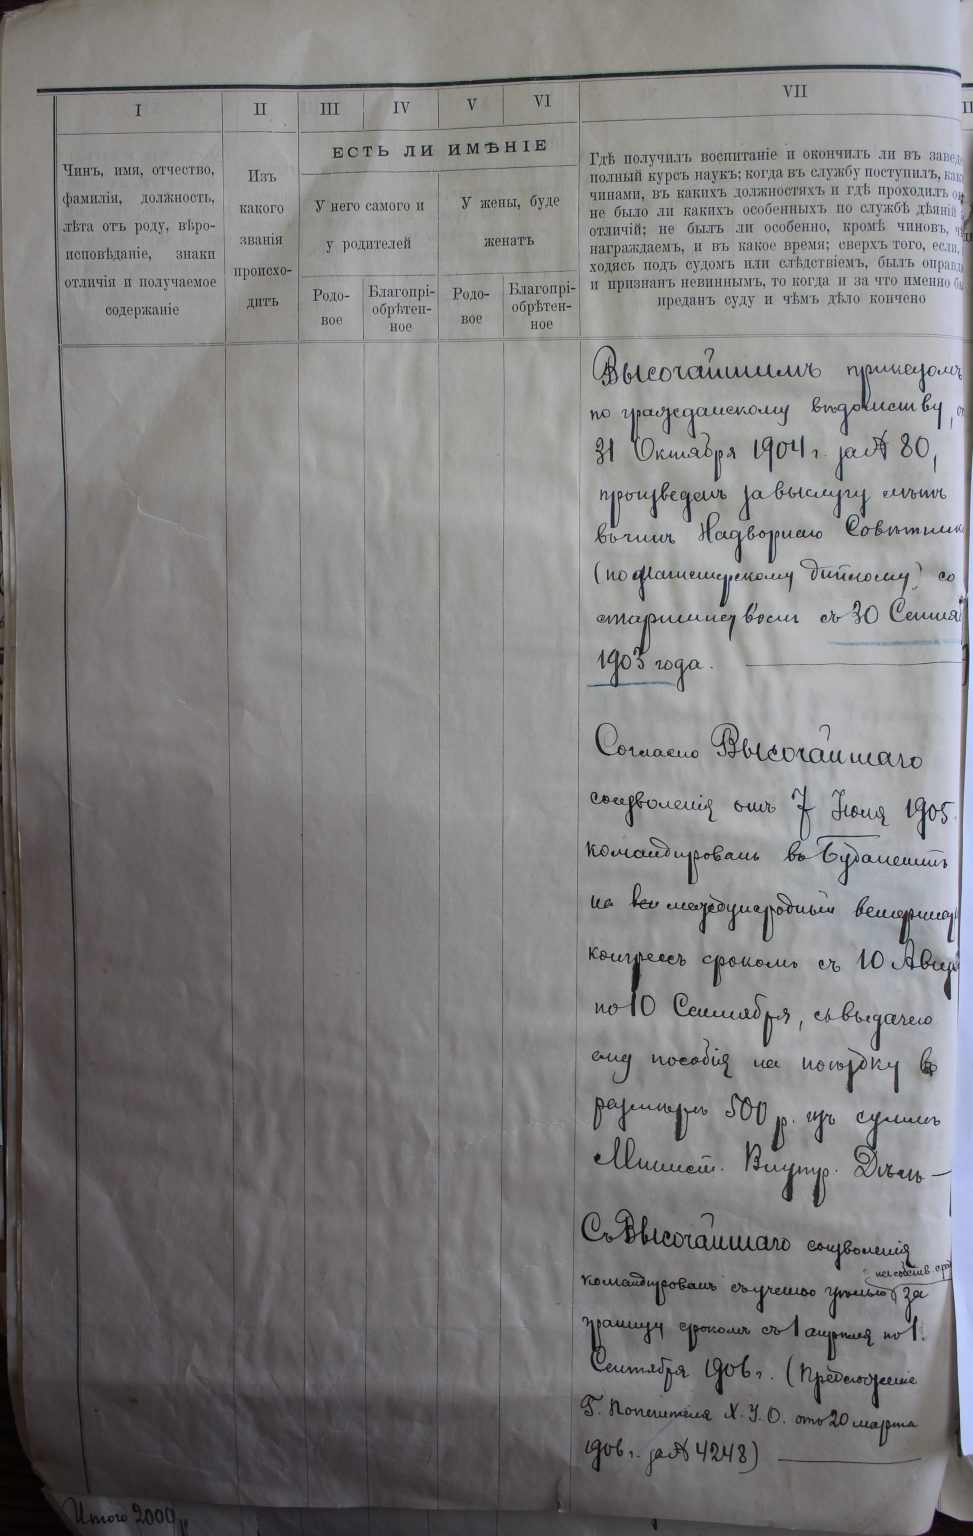 I II III IV V VI VII
ЕСТЬ ЛИ ИМѢНІЕ
Чинъ, имя, отчество,
фамилія, должность,
лѣта отъ роду, вѣро-
исповѣданіе, знаки
отличія и получаемое
содержаніе
Изъ
какого
званія
происхо-
дитъ
У него самого и
у родителей
У жены, буде
женатъ
Родо-
вое
Благопрі-
обрѣтен-
ное
Родо-
вое
Благопрі-
обрѣтен-
ное
Гдѣ получилъ воспитаніе и окончилъ ли въ завед
полный курсъ наукъ; когда въ службу поступилъ, как
чинами, въ какихъ должностяхъ и гдѣ проходилъ он
не было ли какихъ особенныхъ по службѣ дѣяній
отличій; не былъ ли особенно, кромѣ чиновъ, ч
награждаемъ, и въ какое время; сверхъ того, если,
ходясь подъ судомъ или слѣдствіемъ, былъ оправд
и признанъ невиннымъ, то когда и за что именно бы
преданъ суду и чѣмъ дѣло кончено
Высочайшимъ приказомъ
по гражданскому вѣдомству,
31 Октября 1904 г. за № 80,
произведенъ за выслугу лѣтъ
въ чинъ Надворнаго Совѣтник
(по Магистерскому диплому) со
старшинствомъ съ 30 Сентя
1903 года.
Согласно Высочайшаго
соизволенія отъ 7 Іюля 1905
командированъ въ Будапештъ
на международный ветеринар
конгрессъ срокомъ съ 10 Авгу
по 10 Сентября, съ выдачею
ему пособія на поѣздку въ
размѣрѣ 500 р. изъ суммъ
Минист. Внутр. Дѣлъ
Съ Высочайшаго соизволенія
на собств. сред
командированъ съ ученою цѣлью за
границу срокомъ съ 1 апрѣля по 1
Сентября 1906 г. (Предложеніе
Г. Попечителя Х. У. О. отъ 20 марта
1906 г. за № 4248)
Итого 2000 р.